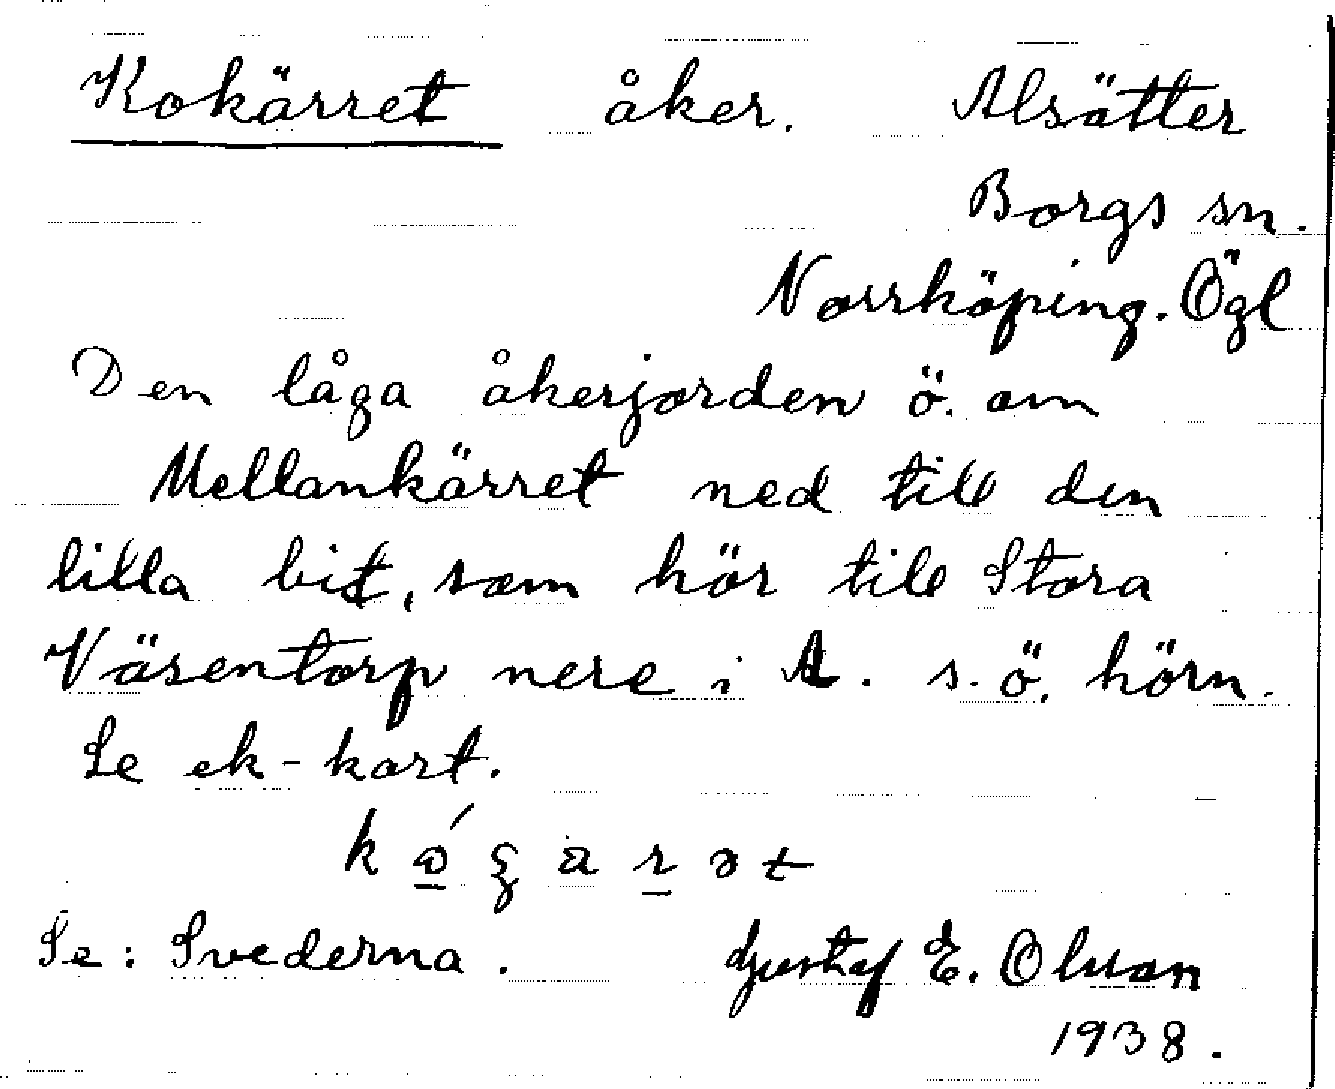 Kokärret åker. Alsätter
Borgs sn.
Norrköping. Ögl
Den låga åkerjorden ö. om
Mellankärret ned till den
lilla bit, som hör till Stora
Väsentorp nere i A. s. ö. hörn.
Se ek-kart.
Se: Svederna. Gustaf E. Olsson
1938.